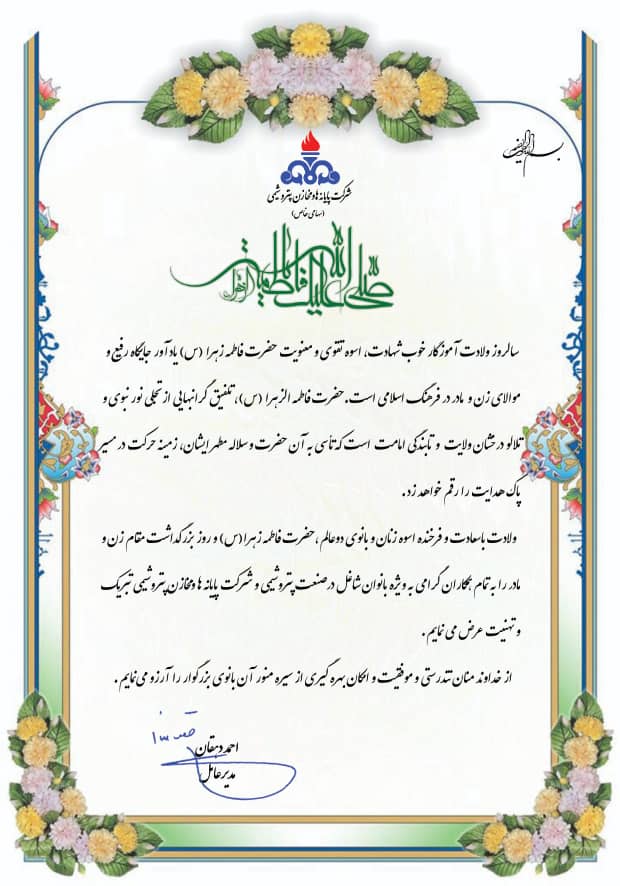 بسم الله الرحمن الرحیم
شرکت پایانه ها و مخازن پتروشیمی
(سهامی خاص)
صلی الله علیک یا فاطمة الزهرا
سالروز ولادت آموزگار خوب شهادت، اسوه تقوی و معنویت حضرت فاطمه زهرا (س) یادآور جایگاه رفیع و
موالای زن و مادر در فرهنگ اسلامی است. حضرت فاطمه الزهرا (س)، تلفیق گرانبهایی از تجلی نور نبوی و
تلالو درخشان ولایت و تابندگی امامت است که تأسی به آن حضرت و سلاله مطهر ایشان، زمینه حرکت در مسیر
پاک هدایت را رقم خواهد زد.
ولادت باسعادت و فرخنده اسوه زنان و بانوی دو عالم، حضرت فاطمه زهرا (س) و روز بزرگداشت مقام زن و
مادر را به تمام همکاران گرامی به ویژه بانوان شاغل در صنعت پتروشیمی و شرکت پایانه ها و مخازن پتروشیمی تبریک
و تهنیت عرض می نمایم.
از خداوند منان تندرستی و موفقیت و امکان بهره گیری از سیره منور آن بانوی بزرگوار را آرزو می نمایم.
احمد دهقان
مدیرعامل